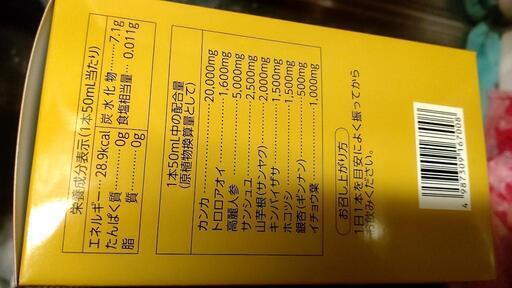 栄養成分表示(1本50mL当たり)
エネルギー……28.9kcal 炭水化物………7.1g
たんぱく質………0g 食塩相当量…0.011g
脂　　質………0g
1本50mL中の配合量
(原植物換算量として)
カンカ………20,000mg
トロロアオイ………1,600mg
高麗人参………5,000mg
サンシュユ………2,500mg
山芋根(サンヤク)………2,000mg
キンバイザサ………1,500mg
ホコツシ………1,500mg
銀杏(ギンナン)………500mg
イチョウ葉………1,000mg
お召し上がり方
1日1本を目安によく振ってから
お飲みください。
4 987309 167008